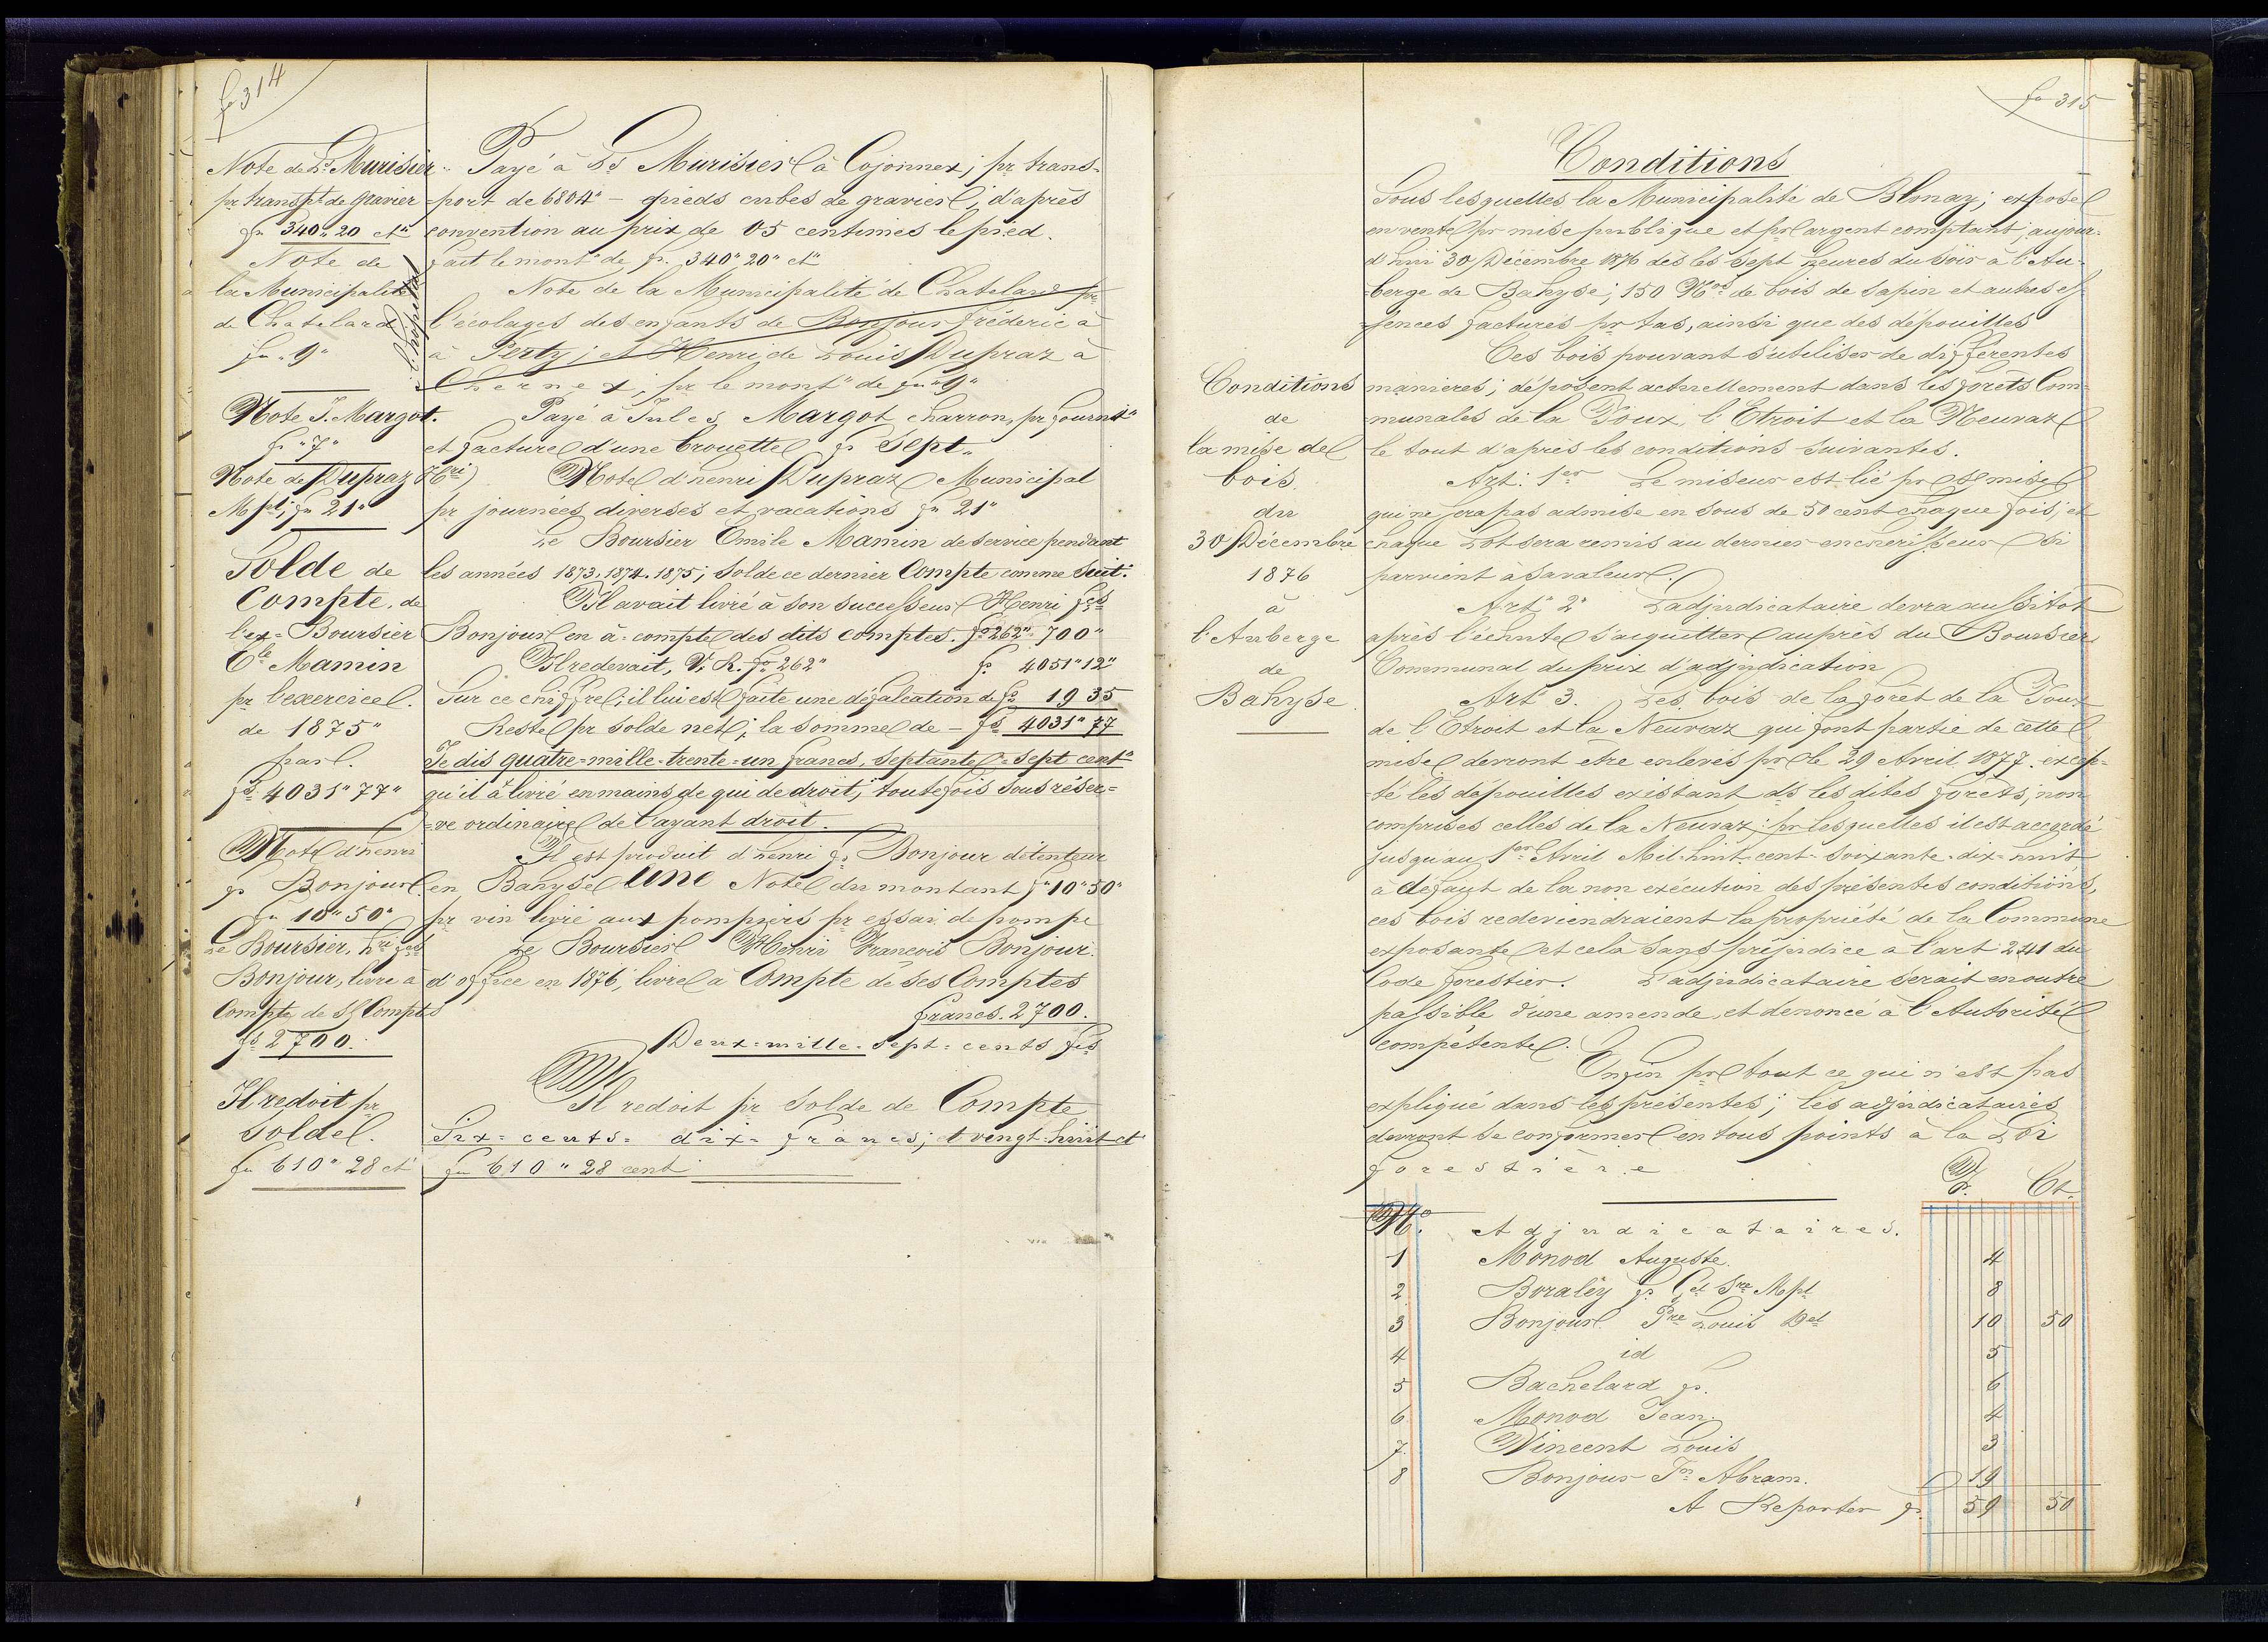 fo 314
Note de Ls Murisier
pr transpt de gravier
fr 340" 20 ct"
Note de
la Municipalité
de Chatelard
fr "9"
l'hôpital
Note J. Margot.
fr "7"
Note de Dupraz Hri)
Mpl; fr 21"
Solde de
Compte, de
l'ex=Boursier
Ele Mamin
pr l'exercice
de 1875"
par
frs 4031"77"
Note d'henri
fs Bonjour
fr 10"50"
Le Boursier, Hri fçs
Bonjour, livre à
Compte de ss Comptes
frs 2700.
Il redoit pr
Solde
fr 610" 28 ct
Payé à Ls Murisier à Cojonnex; pr trans-
=port de 6804" – pieds cubes de gravier; d'après
convention au prix de 05 centimes le pied.
fait le mont" de fr. 340"20" ct"
Note de la Municipalité de Chatelard pr
l'écolages des enfants de Bonjour fréderic à
à Pertz; et Henri de Louis Dupraz à
Chernex; pr le mont" de fr "9"
Payé à Jules Margot charron, pr fournit"
et facture d'une brouette fr Sept.
Note d'henri Dupraz Municipal
pr journées diverses et vacations fr 21"
Le Boursier Emile Mamin de service pendant
les années 1873, 1874. 1875; Solde ce dernier Compte comme suit:
Il avait livré à son successeur Henri fçs
Bonjour en à=compte des dits comptes. fo 262" 700"
Il redevait, V. R. fo 262" fr 4051"12"
Sur ce chiffre; il lui est faite une défalcation de fr 19 35
Reste pr solde net; la somme de – frs 4031"77
Je dis quatre=mille=trente=un francs, septante=sept cent"
qu'il à livré en mains de qui de droit; toutefois sous réser=
=ve ordinaire de l'ayant droit.
Il est produit d'henri fs Bonjour détenteur
en Bahyse une Note du montant fr 10"50"
pr vin livré aux pompiers pr essai de pompe
Le Boursier Henri François Bonjour
d'office en 1876, livre à Compte de ses Comptes
francs. 2700.
Deux=mille=sept=cents frs
Il redoit pr solde de Compte
Six=cents=dix=francs; et vingt huit ct
fr 610 "28 cent
fo 315
Conditions
de
la mise de
bois
du
30 Décembre
1876
à
l'Auberge
de
Bahyse
Conditions
Sous lesquelles la Municipalité de Blonay; expose
en vente pr mise publique et pr argent comptant aujour=
d'hui 30 Décembre 1876 dès les sept heures du soir à l'Au-
=berge de Bahyse; 150 Nos de bois de sapin et autres es=
=sences facturés pr tas, ainsi que des dépouilles
Ces bois pouvant s'utiliser de différentes
manières; déposent actuellement dans les forêts Com=
munales de la Joux, l'Etroit et la Neuvaz
le tout d'après les conditions suivantes.
Art: 1er Le miseur est lié pr sa mise
qui ne sera pas admise en sous de 50 cent chaque fois; et
chaque Lot sera remis au dernier enchérisseur si
parvient à sa valeur.
Art" 2" L'adjudicataire devra aussitot
après l'échute s'acquitter auprès du Boursier
Communal du prix d'adjudication
Art" 3. Les bois de la forêt de la Joux
de l'Etroit et la Neuvaz qui font partie de cette
mise devront être enlevés pr le 29 Avril 1877. excep=
=té les dépouilles existant ds les dites forêts; non
comprises celles de la Neuvaz: pr lesquelles il est accordé
jusqu'au 1er Avril Mil=huit=cent=soixante=dix=huit
à défaut de la non exécution des présentes conditions,
ces bois redeviendraient la propriété de la Commune
exposante et cela sans préjudice à l'art 241 du
Code forestier. L'adjudicataire serait en outre
passible d'une amende, et dénoncé à l'Autorité
compétente.
Enfin pr tout ce qui n'est pas
expliqué dans les présentes; les adjudicataires
devront se conformer en tous points à la Loi
forestière
No. Adjudicataires. Fr. Ct.
1 Monod Auguste. 4
2 Boraley fs Ct Sre Mpl 8
3 Bonjour Pre Louis Det 10 50
4 id 5
5 Bachelard fs. 6
6 Monod Jean 4
7 Vincent Louis 3
8 Bonjour Jn Abram. 19
A Reporter fr. 59 50